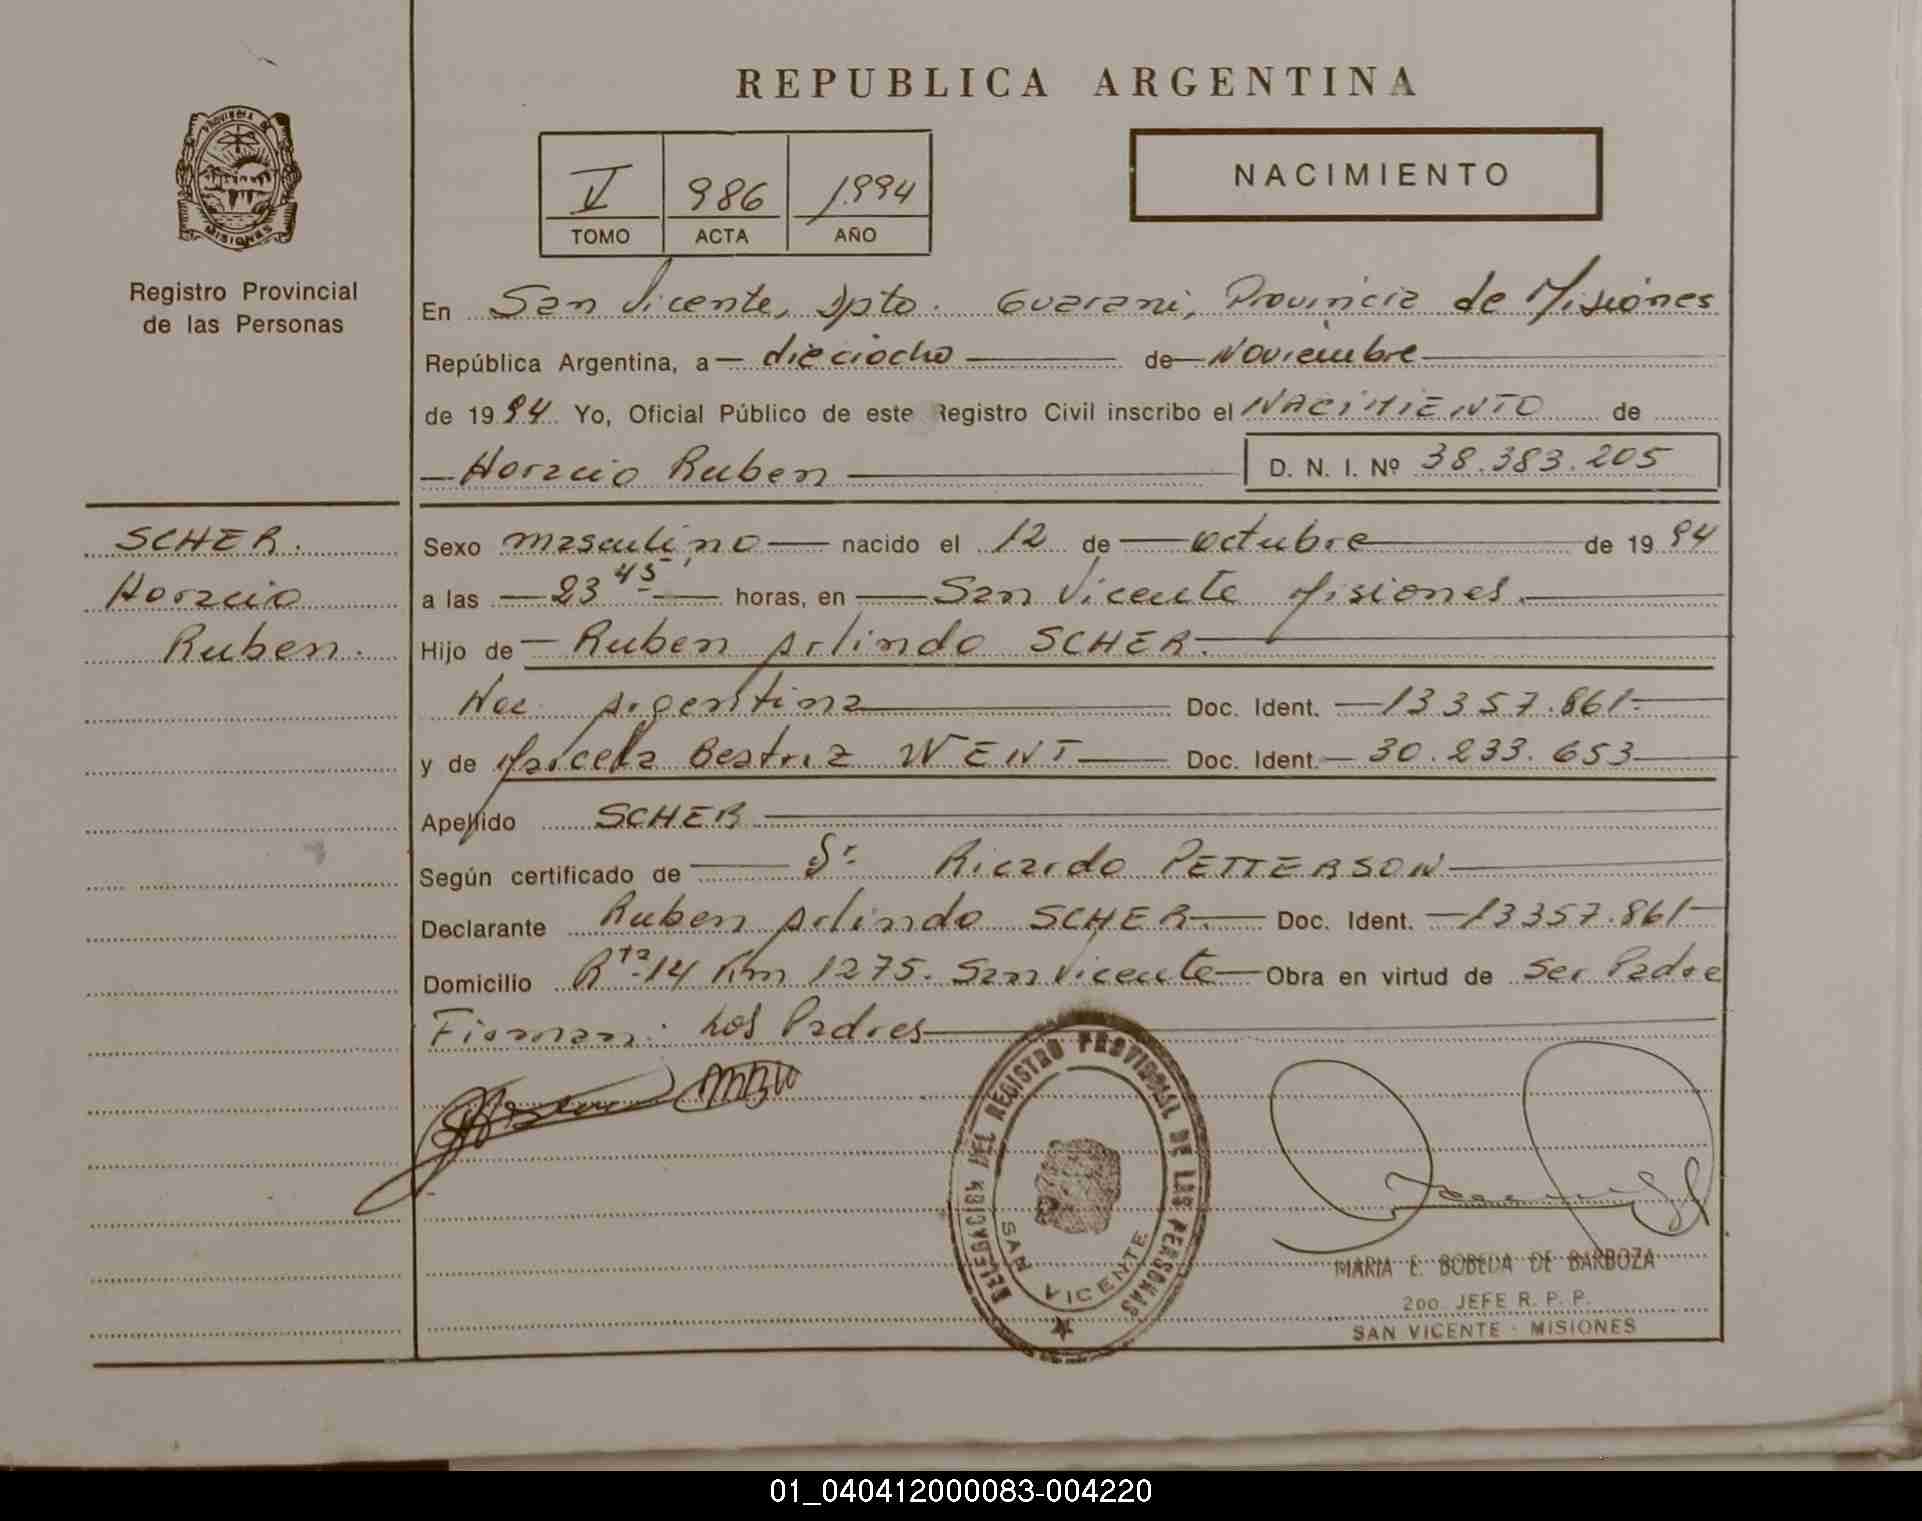 REPUBLICA ARGENTINA
PROVINCIA DE
MISIONES
Registro Provincial
de las Personas
V 986 1994
TOMO ACTA AÑO
NACIMIENTO
En San Vicente, Dpto. Guarani, Provincia de Misiones
República Argentina, a dieciocho de Noviembre
de 1994 Yo, Oficial Público de este Registro Civil inscribo el NACIMIENTO de
Horacio Ruben D. N. I. Nº 38.383.205
SCHER.
Horacio
Ruben.
Sexo masculino nacido el 12 de octubre de 1994
a las 23 45 horas, en San Vicente Misiones.
Hijo de Ruben Arlindo SCHER.
Nac. Argentina Doc. Ident. 13357.861
y de Marcela Beatriz WENT Doc. Ident. 30.233.653
Apellido SCHER
Según certificado de Sr. Ricardo PETTERSON
Declarante Ruben Arlindo SCHER. Doc. Ident. 13357.861
Domicilio Rta. 14 Km 1275. San Vicente Obra en virtud de Ser Padre
Firman: Los Padres
DELEGACION DEL REGISTRO PROVINCIAL DE LAS PERSONAS
SAN VICENTE
MARIA E. BOBEDA DE BARBOZA
2do. JEFE R. P. P.
SAN VICENTE - MISIONES
01_040412000083-004220